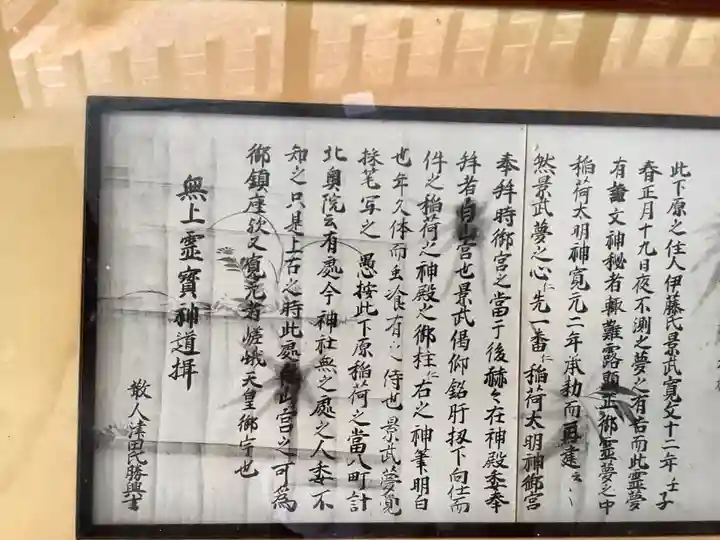 此下原之住人伊藤氏景武寛文十二年壬子
春正月十九日夜不測之夢之有告而此霊夢
有讖文神秘者輙難露顕正御霊夢之中
稲荷太明神寛元二年承勅而再建云々
然景武夢之心仁先一番仁稲荷太明神御宮
奉拜時御宮之當于後赫々在神殿委奉
拜若白山宮也景武偈仰銘肝扨下向仕而
件之稲荷之神殿之御柱仁右之神筆明白
也年久体而虫喰有之侍也景武夢覚
採笔写之 愚按此下原稲荷之當八町計
北奥院云有處今神社無之處之人委不
知之只是上右之時此處山宮之可為
御鎮座欤又寛元若嵯峨天皇御宇也
無上霊寳神道揖
散人津田氏勝興書